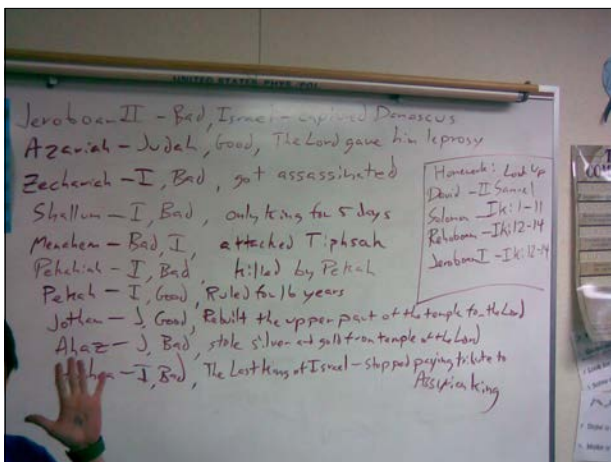 UNITED STATES
Jeroboam II - Bad, Israel - captured Damascus
Azariah - Judah, Good, The Lord gave him leprosy
Zechariah - I, Bad, got assassinated
Shallum - I, Bad, only king for 5 days
Menahem - Bad, I, attacked Tiphsah
Pekahiah - I, Bad, killed by Pekah
Pekah - I, Good, Ruled for 16 years
Jotham - J, Good, Rebuilt the upper part of the temple for the Lord
Ahaz - J, Bad, stole silver and gold from temple of the Lord
- I, Bad, The Last king of Israel - stopped paying tribute to
Assyrian king
Homework: Look Up
David - II Samuel
Solomon - I Ki: 1-11
Rehoboam - I Ki: 12-14
Jeroboam I - I Ki: 12-14